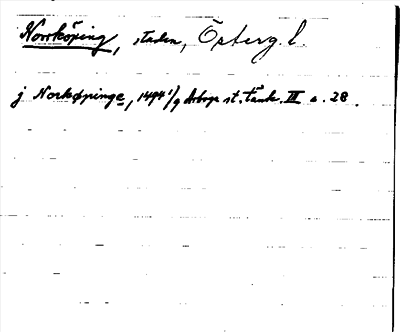 Norrköping, staden, Österg. l.
j Norkøpinge, 1494 1/9 Arboga st. tänk. III s. 28.